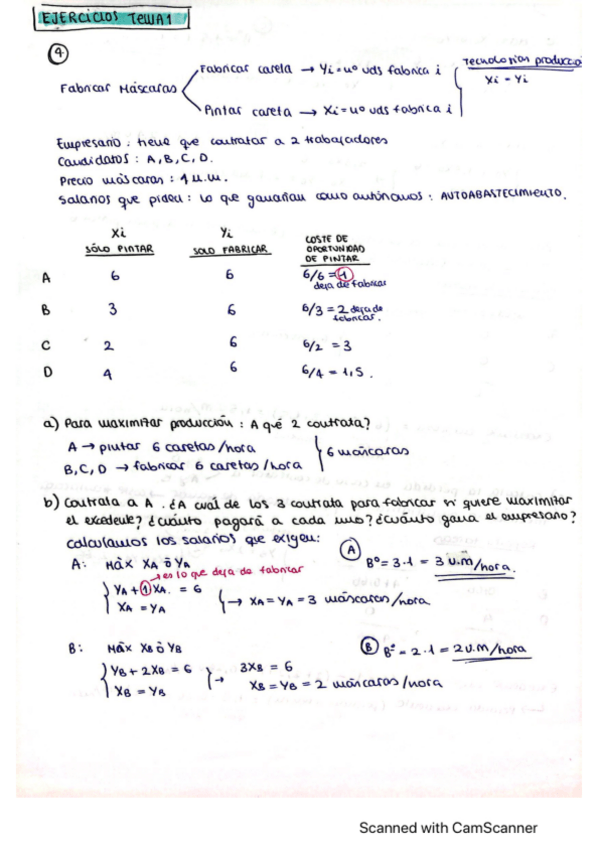 EJERCICIOS TEMA 1
4
Fabricar Máscaras
Fabricar careta → Yi = uº uds fabrica i
Pintar careta → Xi = uº uds fabrica i
Tecnologías producció
Xi = Yi
Empresario: tiene que contratar a 2 trabajadores
Candidatos: A, B, C, D.
Precio máscaras: 1 u.m.
Salarios que piden: lo que ganarían como autónomos: AUTOABASTECIMIENTO.
Xi Yi
SÓLO PINTAR SOLO FABRICAR COSTE DE OPORTUNIDAD DE PINTAR
A 6 6 6/6 = 1 deja de fabricar
B 3 6 6/3 = 2 deja de fabricar.
C 2 6 6/2 = 3
D 4 6 6/4 = 1,5.
a) Para maximizar producción: A qué 2 contrata?
A → pintar 6 caretas/hora
B, C, D → fabricar 6 caretas/hora
6 máscaras
b) Contrata a A. ¿A cuál de los 3 contrata para fabricar si quiere maximizar
el excedente? ¿Cuánto pagará a cada uno? ¿Cuánto gana el empresario?
Calculamos los salarios que exigen:
A: Máx XA ò YA
→ en lo que deja de fabricar
YA + 1XA = 6
XA = YA
→ XA = YA = 3 máscaras/hora
A Bº = 3·1 = 3 u.m/hora.
B: Máx XB ò YB
YB + 2XB = 6
XB = YB
→ 3XB = 6
XB = YB = 2 máscaras/hora
B Bº = 2·1 = 2 u.m/hora
Scanned with CamScanner